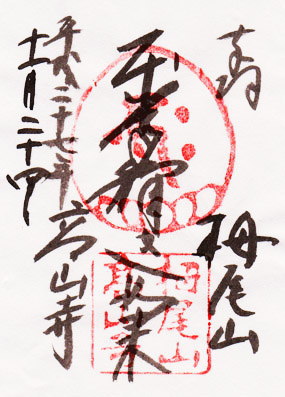 奉拝
栂尾山
本尊釈迦如来
高山寺
平成二十七年
十一月二十四日
栂尾山
高山寺